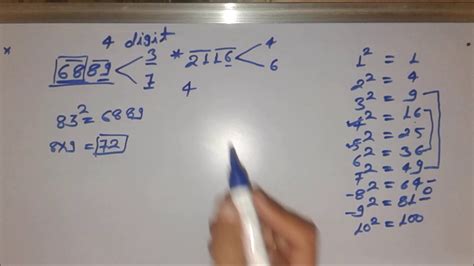 4 digit
6889 < 3
7
* 2116 < 4
6
4
83² = 6889
8x9 = 72
1² = 1
2² = 4
3² = 9
4² = 16
5² = 25
6² = 36
7² = 49
-8² = 64
-9² = 81
10² = 100